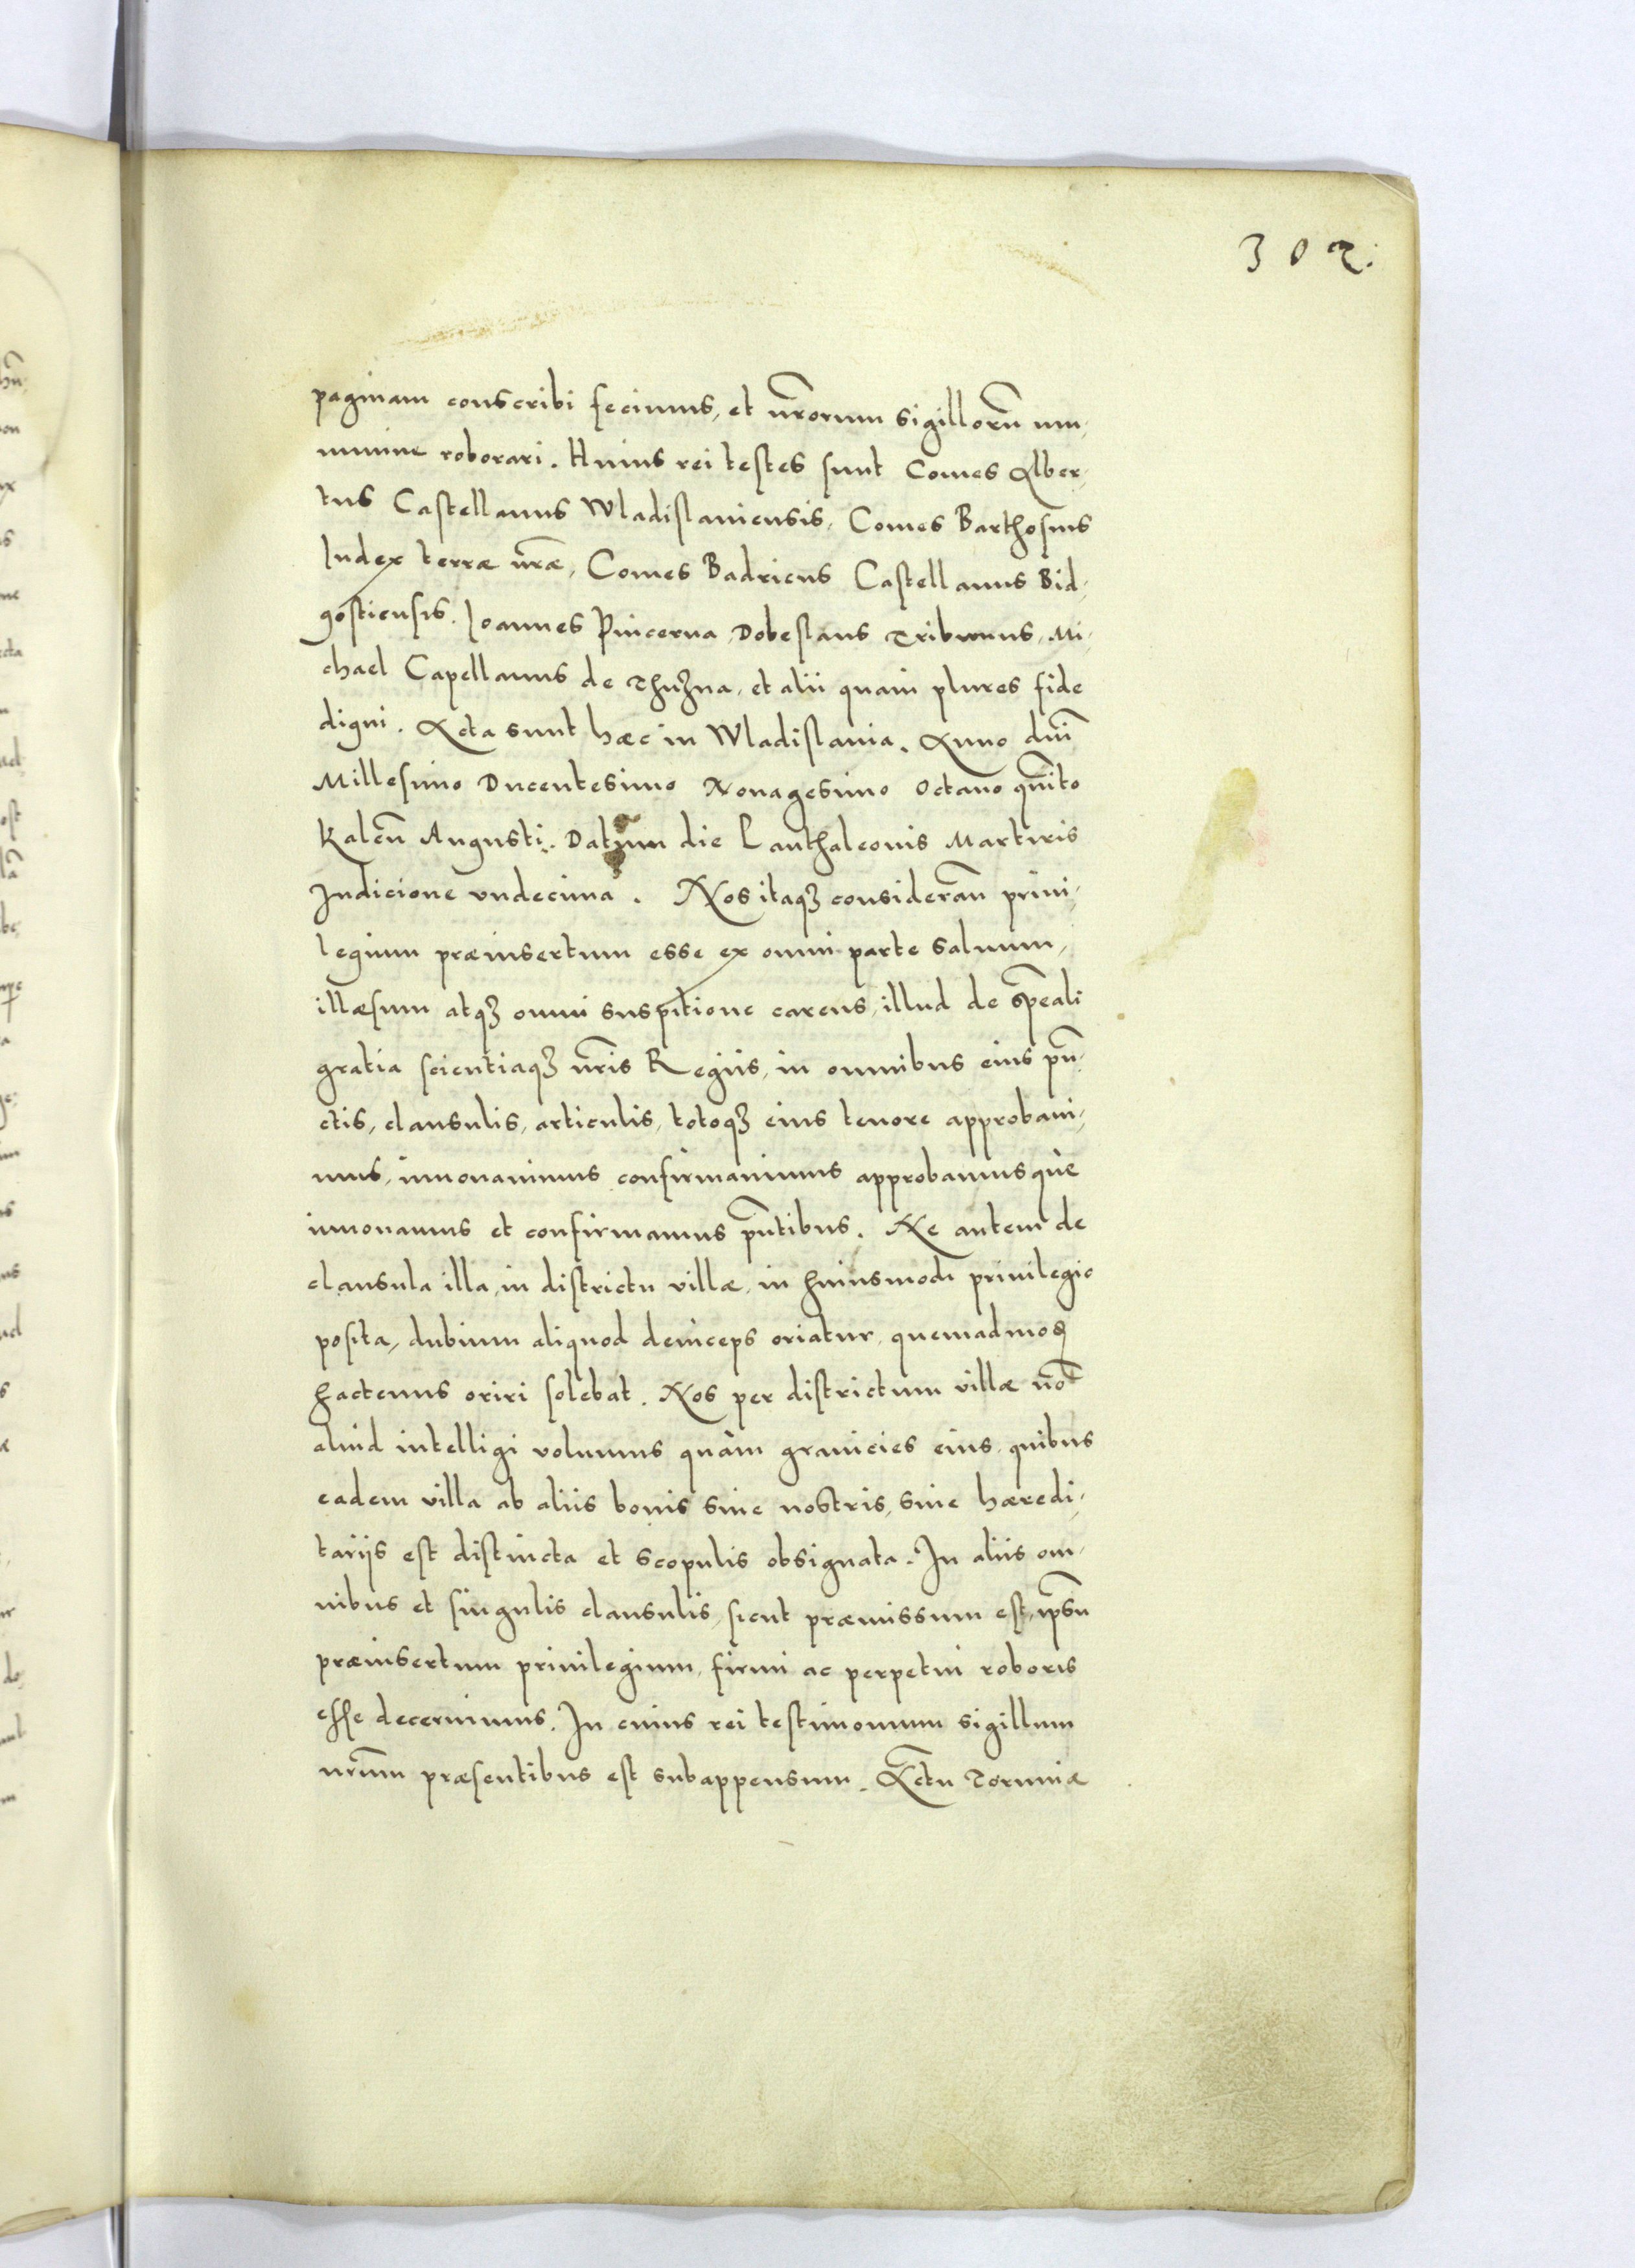 302.
paginam conscribi fecimus, et nr̃orum sigillorũ mu,
nimine roborari. Huius rei testes sunt Comes Alber,
tus Castellanus Wladislauiensis, Comes Barthosius
Iudex terræ nr̃æ, Comes Badricus Castellanus Bid,
gostiensis. Ioannes Pincerna, Dobeslaus Tribunus, Mi,
chael Capellanus de Thuzna, et alii quam plures fide
digni. Acta sunt hæc in Wladislauia. Anno dñi
Millesimo Ducentesimo Nonagesimo Octauo quĩto
Kaleñ Augusti. Datum die Panthaleonis Martiris
Indicione vndecima. Nos itaqꝫ considerañ priui,
legium præinsertum esse ex omni parte saluum,
illæsum atqꝫ omni suspitione carens, illud de speãli
gratia scientiaqꝫ nr̃is Regiis, in omnibus eius pũ,
ctis, clausulis, articulis, totoqꝫ eius tenore approbaui,
mus, innouauimus confirmauimus approbamusque
innouamus et confirmamus pñtibus. Ne autem de
clausula illa, in districtu villæ, in huiusmodi priuilegio
posita, dubium aliquod deinceps oriatur, quemadmoꝫ
hactenus oriri solebat. Nos per districtum villæ nõ
aliud intelligi volumus quàm granicies eius, quibus
eadem villa ab aliis bonis siue nostris, siue hæredi,
tariis est distincta et scopulis obsignata. In aliis om,
nibus et singulis clausulis, sicut præmissum est, ip̃su
præinsertum priuilegium, firmi ac perpetui roboris
esse decernimus. In cuius rei testimonium sigillum
nr̃um præsentibus est subappensum. Actũ Toruniæ